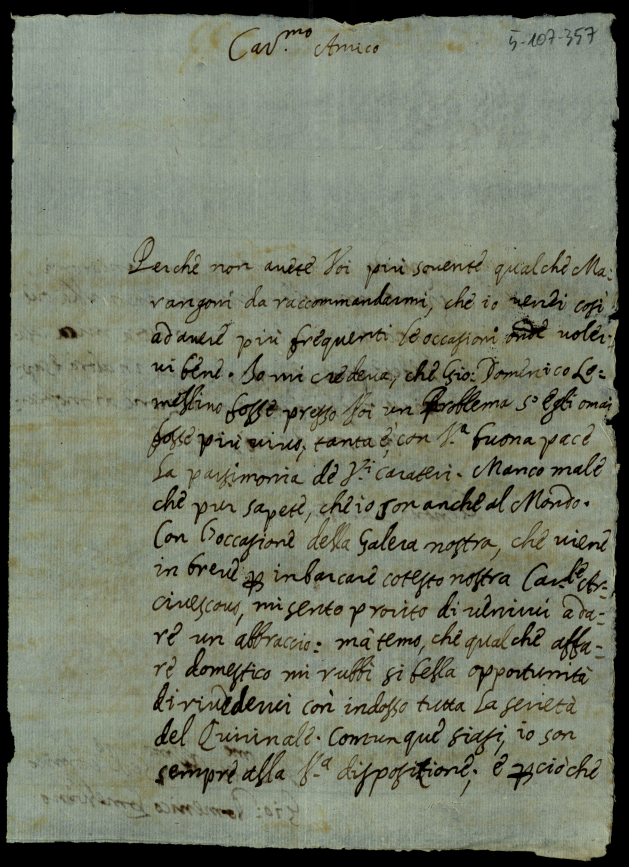 Car.mo Amico
5-107-357
Perche non avete Voi più sovente qualche Ma-
rangoni da raccommandarmi, che io verrei così
ad avere più frequenti le occasioni onde voler-
vi bene. Io mi credeva, che Gio: Domenico Lo-
mellino fosse presso Voi un Problema s'Egli omai
fosse più vivo; tanta è, con V.a buona pace
la parsimonia de V.i carateri. Manco male
che pur sapete, che io son anche al Mondo.
Con l'occasione della Galera nostra, che viene
in breve per inbarcare cotesto nostro Car.le Ar-
civescovo, mi sento prorito di venirvi a da-
re un abbraccio: mà temo, che qualche affa-
re domestico mi rubbi si bella opportunità
di rivedervi con indosso tutta la serietà
del Quirinale. Comunque siasi, io son
sempre alla V.a disposizione; e perciò che